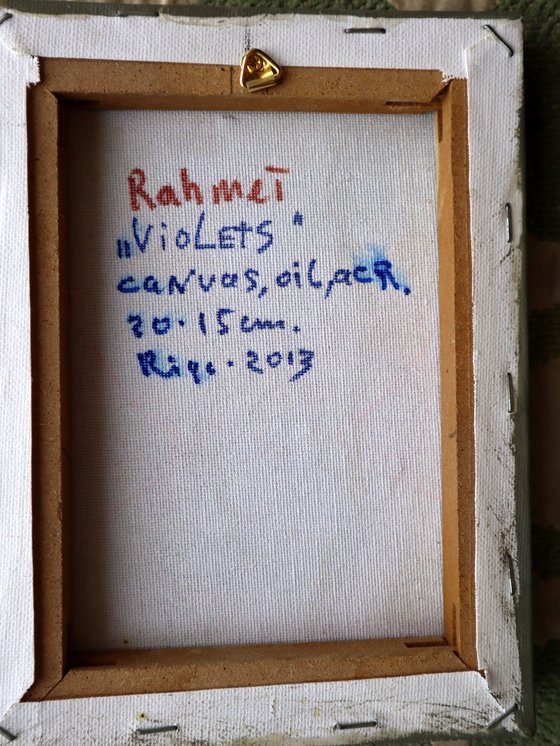 Rahmet
„VioLETS"
canvas, oil, acr.
20·15 cm.
Riga·2013